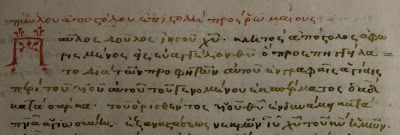 παύλου ἀποστόλου ἐπιστολὴ πρὸς ῥωμαίους:
Παῦλος δοῦλος ἰησοῦ χυ· κλητὸς ἀπόστολος ἀφω
ρισμένος εἰς εὐαγγέλιον θυ ὃ προεπηγγείλα
το διὰ τῶν προφητῶν αὐτοῦ ἐν γραφαῖς ἁγίαις
περὶ τοῦ υἱοῦ αὐτοῦ τοῦ γενομένου ἐκ σπέρματος δαδ
κατὰ σάρκα· τοῦ ὁρισθέντος υἱοῦ θυ ἐν δυνάμει κατὰ
πνα ἁγιωσύνης ἐξ ἀναστάσεως νεκρῶν ιυ χυ τοῦ κυ ἡμῶν·